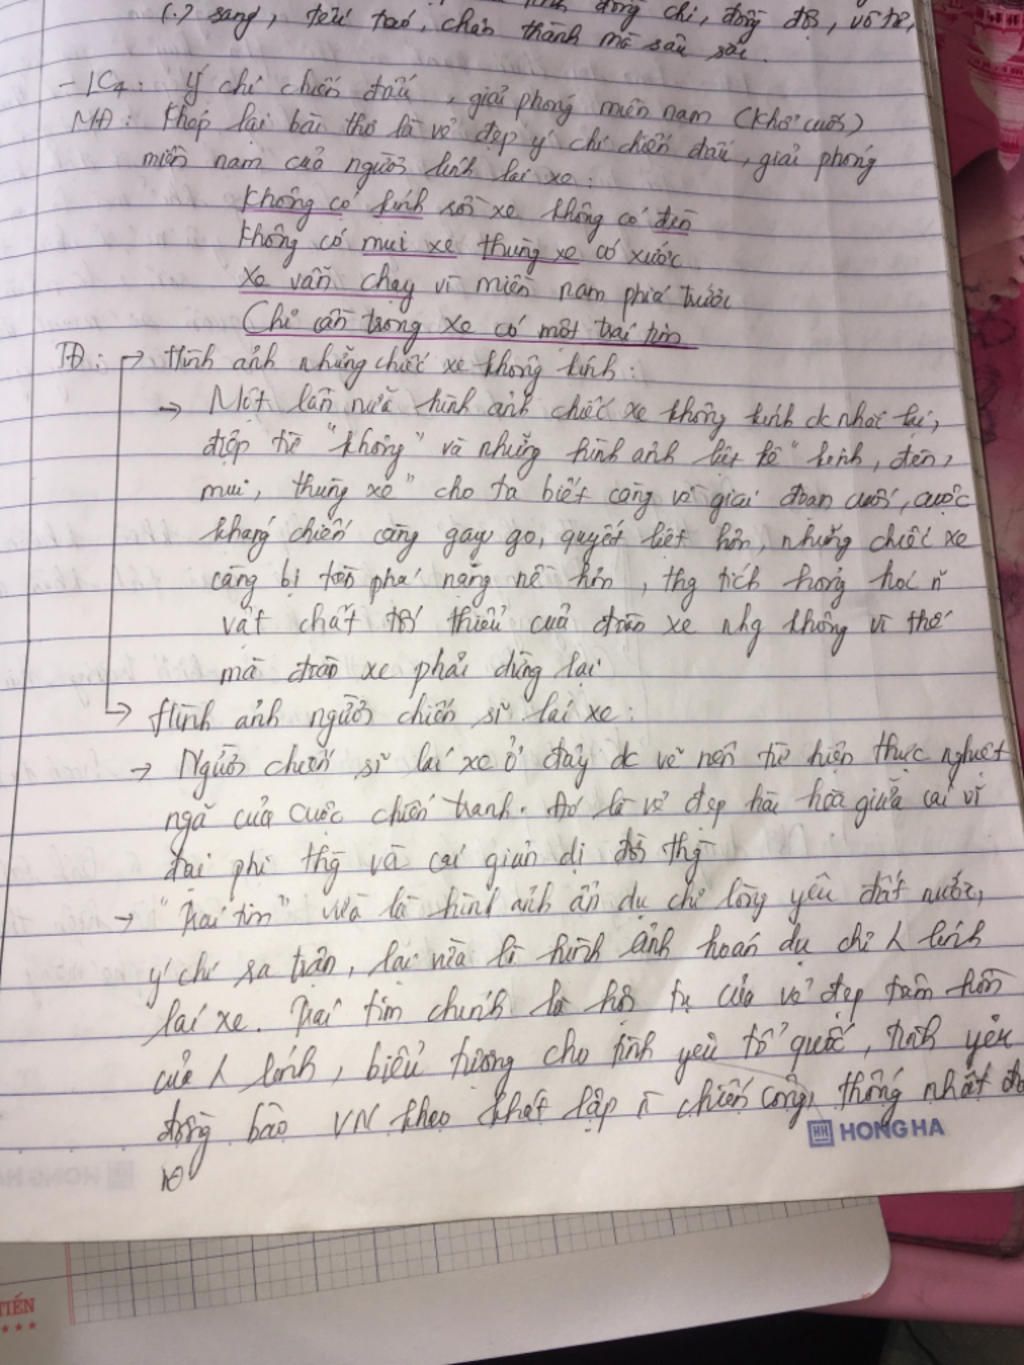 đồng chí, đồng đội, vô tư,
(.) sang, tếu táo, chân thành mà sâu sắc.
- LC4: Ý chí chiến đấu, giải phóng miền nam (khổ cuối)
MĐ: Khép lại bài thơ là vẻ đẹp ý chí chiến đấu, giải phóng
miền nam của người lính lái xe:
Không có kính rồi xe không có đèn
Không có mui xe thùng xe có xước
Xe vẫn chạy vì miền nam phía trước
Chỉ cần trong xe có một trái tim
TĐ: → Hình ảnh những chiếc xe không kính:
→ Một lần nữa hình ảnh chiếc xe không kính đc nhắc lại,
điệp từ "không" và những hình ảnh liệt kê "kính, đèn,
mui, thùng xe" cho ta biết càng về giai đoạn cuối, cuộc
kháng chiến càng gay go, quyết liệt hơn, những chiếc xe
càng bị tàn phá nặng nề hơn, thg tích hỏng hóc ~
vật chất tối thiểu của đoàn xe nhg không vì thế
mà đoàn xe phải dừng lại
→ Hình ảnh người chiến sĩ lái xe:
→ Người chiến sĩ lái xe ở đây đc vẽ nên từ hiện thực nghiệt
ngã của cuộc chiến tranh. Đó là vẻ đẹp hài hòa giữa cái vĩ
đại phi thg và cái giản dị đời thg
→ "Trái tim" vừa là hình ảnh ẩn dụ chỉ lòng yêu đất nước,
ý chí ra trận, lại vừa là hình ảnh hoán dụ chỉ lính
lái xe. Trái tim chính là hội tụ của vẻ đẹp tâm hồn
của lính, biểu tượng cho tình yêu tổ quốc, tình yêu
đồng bào VN khao khát lập chiến công, thống nhất
HH HONG HA
TIẾN